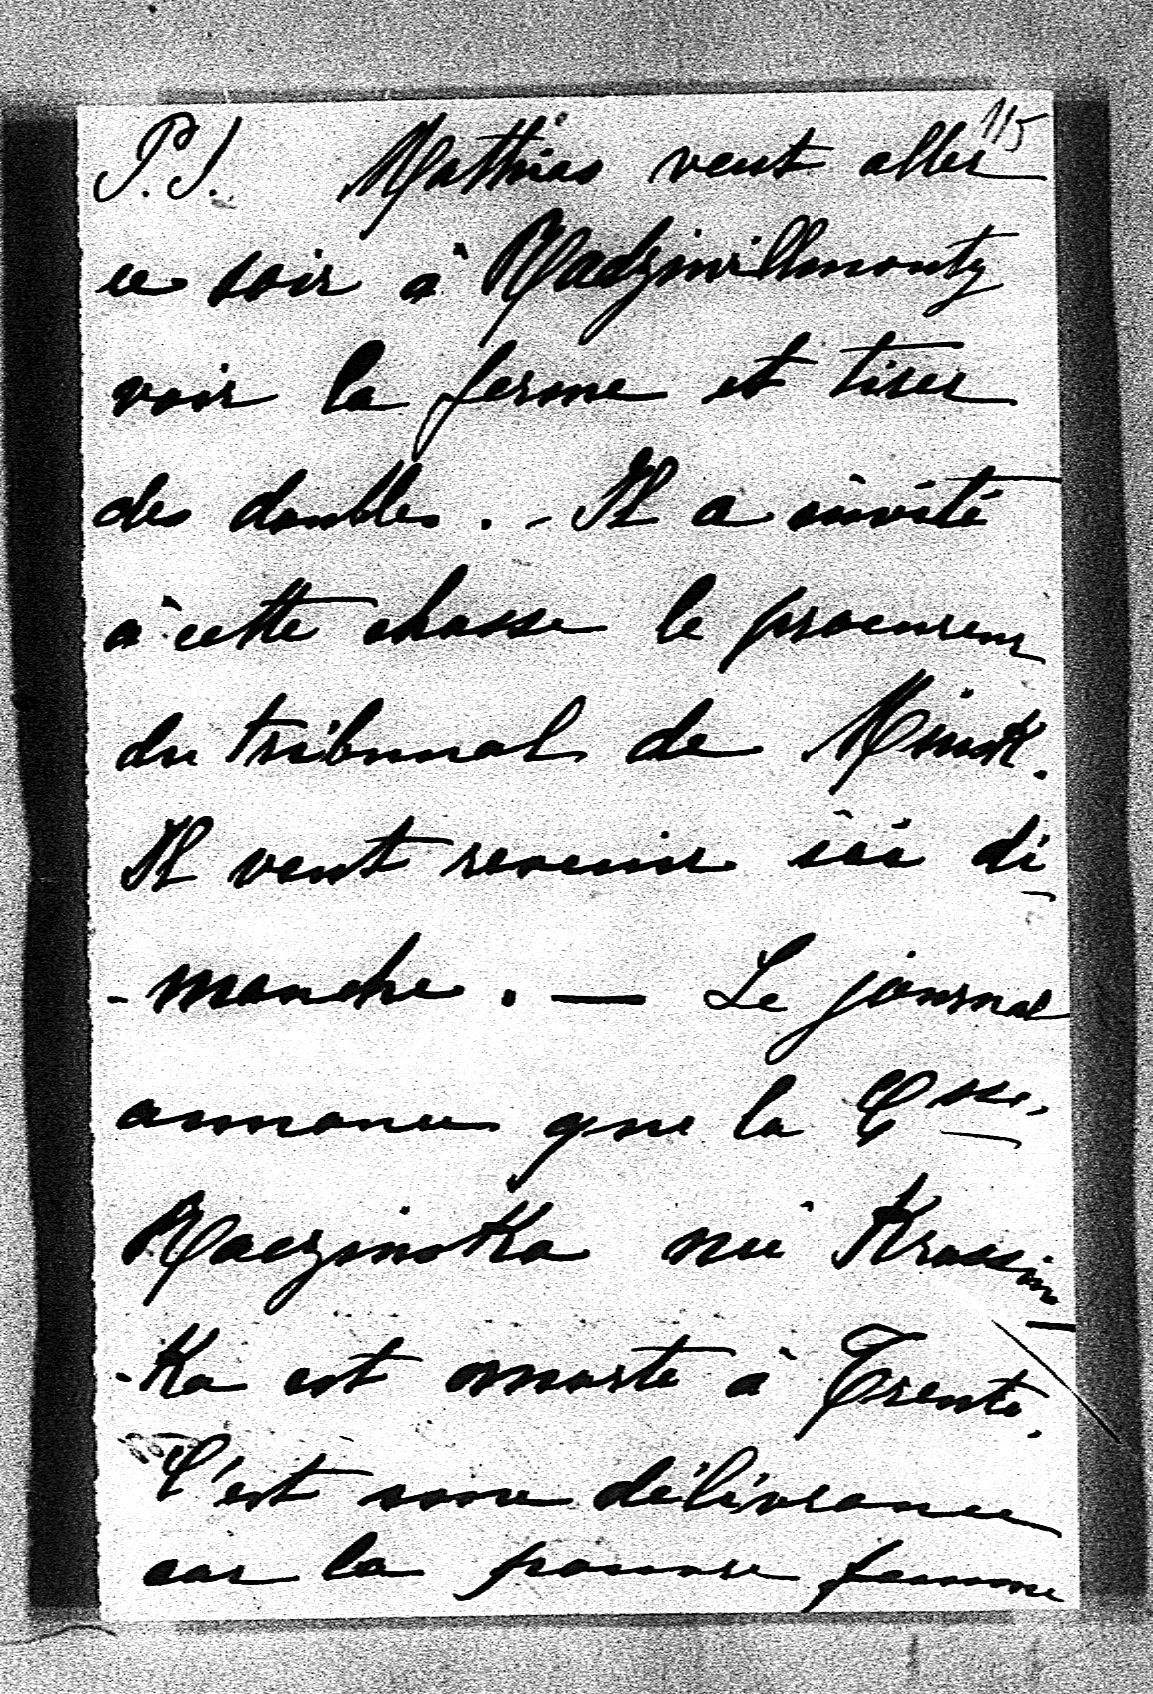 115
P.S. Mathias veut aller
ce soir à Radziwillmonty
voir la ferme et tirer
des doubles. - Il a invité
à cette chasse le procureur
du tribunal de Minsk.
Il veut revenir ici di
-manche. — Le journal
annonce que la Csse.
Raczinska née Krassin
-ka est morte à Trente.
C'est une délivrance
car la pauvre femme